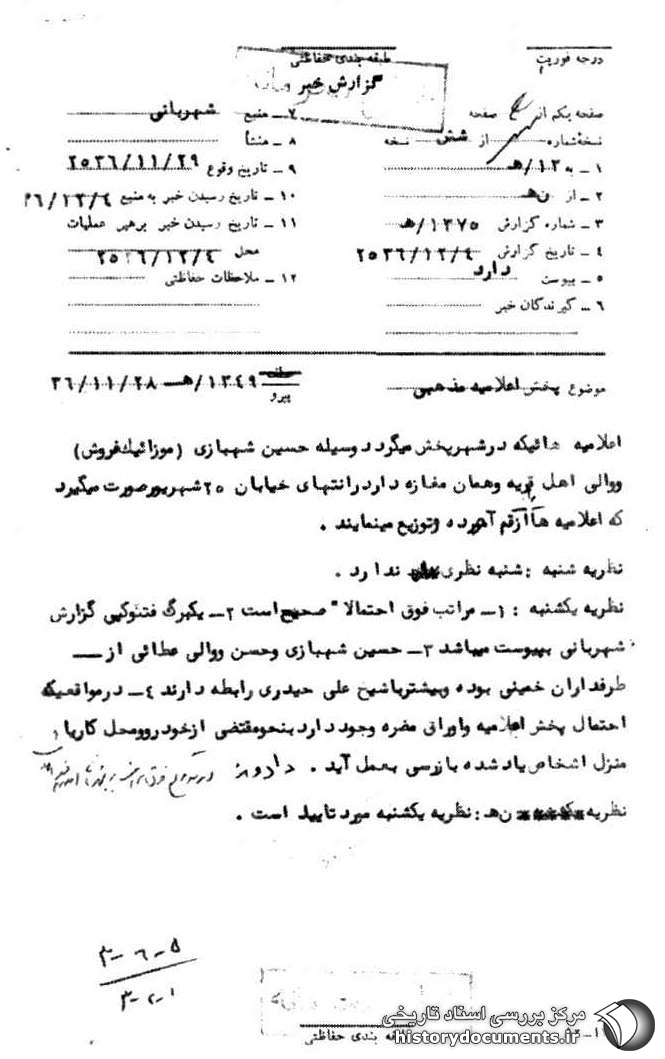 درجه فوریت
طبقه بندی حفاظتی
گزارش خبر
صفحه یکم از صفحه
نسخه شماره از شش نسخه
۱ـ به ۱۲/هـ
۲ـ از ن هـ
۳ـ شماره گزارش ۱۳۷۵/هـ
۴ـ تاریخ گزارش ۲۵۳۶/۱۲/۴
۵ـ پیوست دارد
۶ـ گیرندگان خبر
۷ـ منبع شهربانی
۸ـ منشأ
۹ـ تاریخ وقوع ۲۵۳۶/۱۱/۲۹
۱۰ـ تاریخ رسیدن خبر به منبع ۳۶/۱۲/۴
۱۱ـ تاریخ رسیدن خبر برهبر عملیات
محل ۲۵۳۶/۱۲/۴
۱۲ـ ملاحظات حفاظتی
موضوع پخش اعلامیه مذهبی
پیرو ۱۳۴۹/هـ ـ ۳۶/۱۱/۲۸
اعلامیه هائیکه در شهر پخش میگردد وسیله حسین شهبازی (موزائیک فروش)
ووالی اهل قریه وهمان مغازه دارد رانتهای خیابان ۲۵ شهریور صورت میگیرد
که اعلامیه ها از قم آورده و توزیع مینمایند .
نظریه شنبه : شنبه نظری ندارد .
نظریه یکشنبه : ۱ـ مراتب فوق احتمالا" صحیح است ۲ـ یکبرگ فتوکپی گزارش
شهربانی بپیوست میباشد ۳ـ حسین شهبازی وحسن ووالی عطائی از ـــ
طرفداران خمینی بوده و بیشتر با شیخ علی حیدری رابطه دارند ۴ـ در مواقعیکه
احتمال پخش اعلامیه واوراق مضره وجود دارد بنحو مقتضی از خودرو و محل کار یا
منزل اشخاص یاد شده بازرسی بعمل آید .
نظریه ن هـ : نظریه یکشنبه مورد تایید است .
۳-۶-۵
۳-۲-۱
طبقه بندی حفاظتی
مرکز بررسی اسناد تاریخی
historydocuments.ir